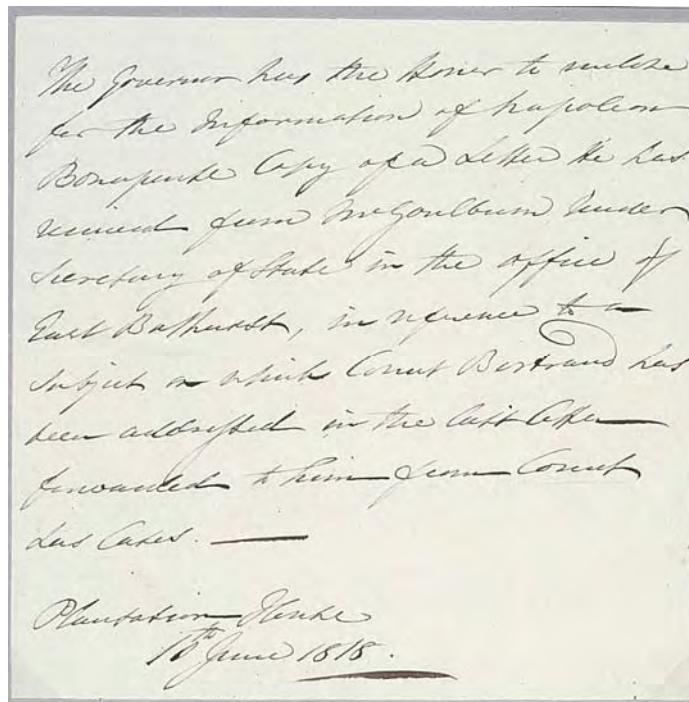 The Governor has the Honor to enclose
for the Information of Napoleon
Bonaparte Copy of a Letter He has
received from Mr Goulburn Under
Secretary of State in the office of
Earl Bathurst, in reference to a
subject on which Count Bertrand has
been addressed in the last letter
forwarded to him from Count
Las Cases.
Plantation House
June 1818.